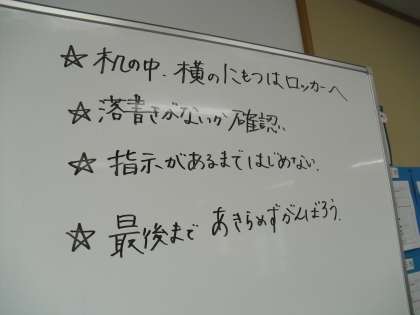 ☆ 机の中、横のにもつはロッカーへ
☆ 落書きがないか確認。
☆ 指示があるまではじめない。
☆ 最後まであきらめずがんばろう。